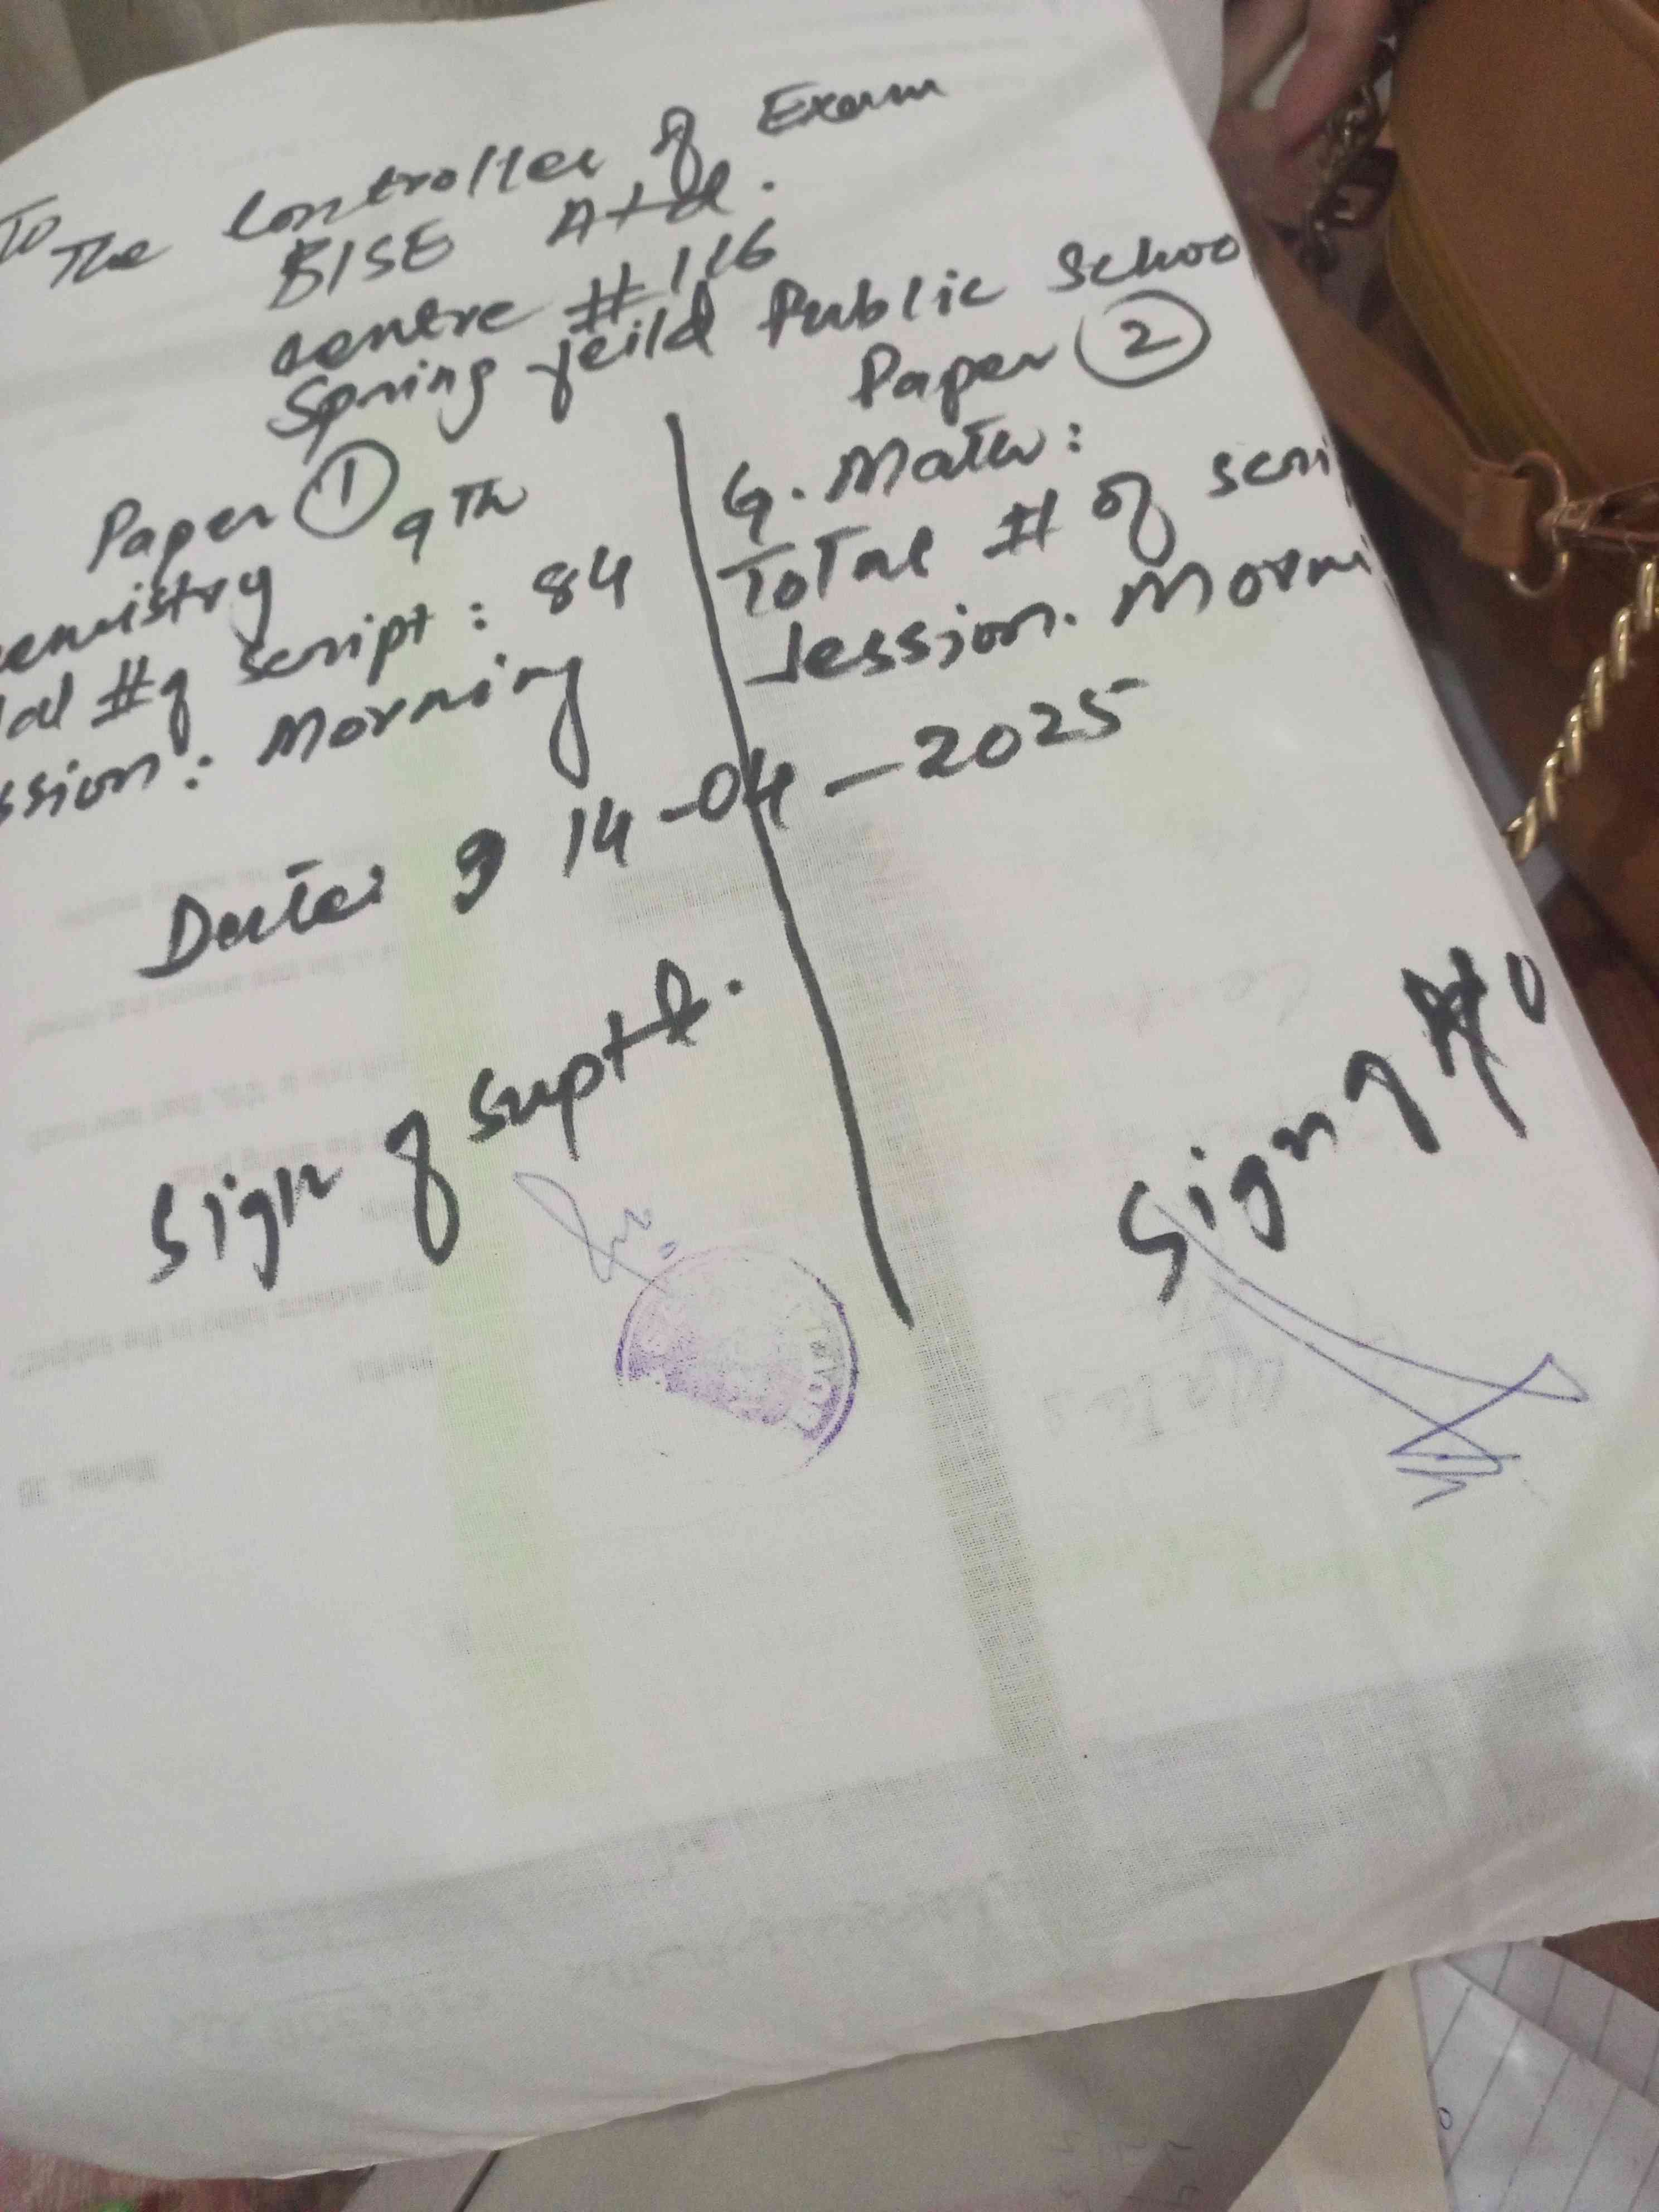 To
The Controller of Exam
BISE Atd.
Centre # 116
Spring feild Public Schoo
Paper 1
9th
emistry
tal # of script : 84
ssion : Morning
Paper 2
G. Math :
Total # of scri
Session. Morni
Date: 14-04-2025
Sign of Suptd.
Sign of